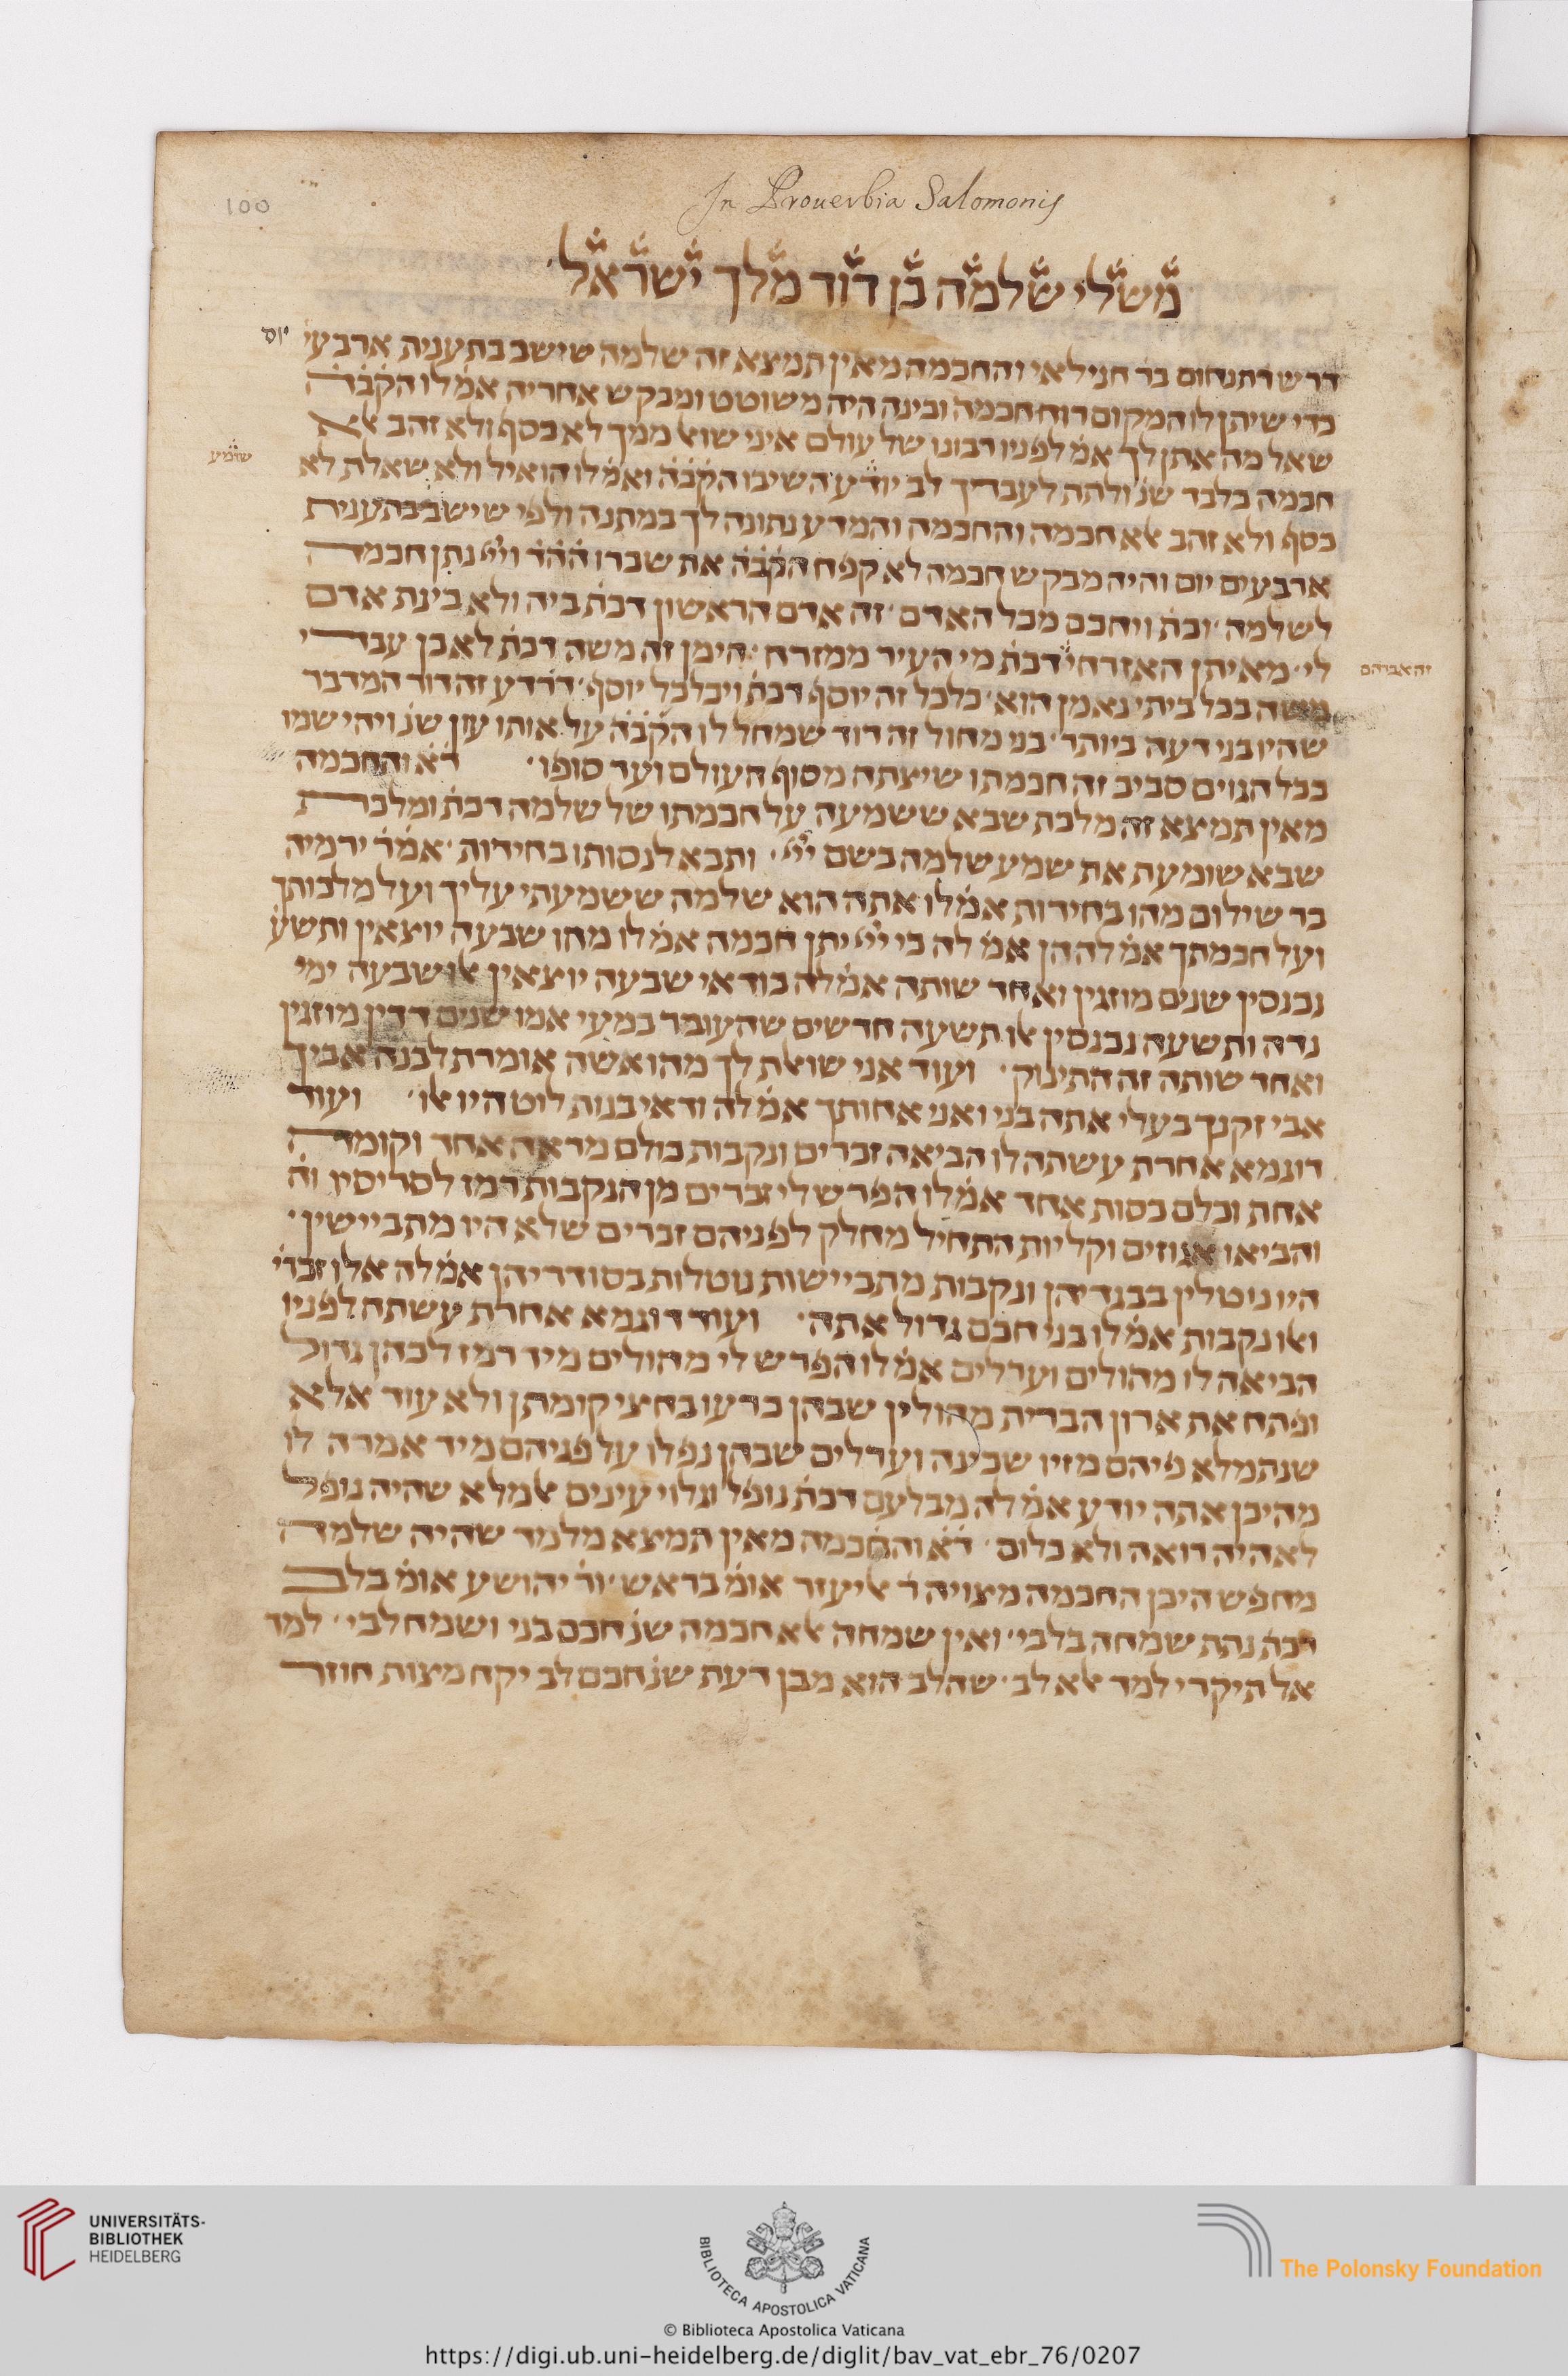 100
In Prouerbia Salomonis
משלי שלמה בן דוד מלך ישראל
יום
דרש ר תנחום בר חנילאי והחכמה מאין תמצא זה שלמה שישב בתענית ארבעי
כדי שיתן לו המקום רוח חכמה ובינה היה משוטט ומבקש אחריה אמ׳ לו הק׳ב׳ה׳
שאל מה אתן לך אמ׳ לפניו רבונו של עולם איני שואל ממך לא כסף ולא זהב אלא
שומע
חכמה בלבד שנ׳ ונתת לעבדך לב יודע השיבו הק׳ב׳ה׳ ואמ׳ לו הואיל ולא שאלת לא
כסף ולא זהב אלא חכמה והחכמה והמדע נתונה לך במתנה ולפי שישב בתענית
ארבעים יום והיה מבקש חכמה לא קפח הק׳ב׳ה׳ את שכרו ה׳ה׳ד׳ ויי׳ נתן חכמה
לשלמה׳ וכת׳ ויחכם מכל האדם׳ זה אדם הראשון דכת׳ ביה ולא בינת אדם
לי׳ מאיתן האזרחי דכת׳ מי העיר ממזרח׳ הימן זה משה דכת׳ לא כן עבדי
זה אברהם
משה בכל ביתי נאמן הוא׳ כלכל זה יוסף דכת׳ ויכלכל יוסף׳ דרדע זה דור המדבר
שהיו בני דעה ביותר׳ בני מחול זה דוד שמחל לו הק׳ב׳ה׳ על אותו עון שנ׳ ויהי שמו
בכל הגוים סביב זה חכמתו שיצתה מסוף העולם ועד סופו׳ ד׳א׳ והחכמה
מאין תמצא זה מלכת שבא ששמעה על חכמתו של שלמה דכת׳ ומלכת
שבא שומעת את שמע שלמה בשם יי׳׳ ותבא לנסותו בחידות׳ אמ׳ ר׳ ירמיה
בר שילום מהו בחידות אמ׳ לו אתה הוא שלמה ששמעתי עליך ועל מלכותך
ועל חכמתך אמ׳ לה הן אמ׳ לה כי יי׳ יתן חכמה אמ׳ לו מהו שבעה יוצאין ותשע׳
נכנסין שנים מוזגין ואחד שותה אמ׳ לה בודאי שבעה יוצאין אלו שבעה ימי
נדה ותשעה נכנסין אלו תשעה חדשים שהעובר במעי אמו שנים דדין מוזגין
ואחד שותה זה התינוק׳ ועוד אני שואלת לך מהו אשה אומרת לבנה אביך
אבי זקנך בעלי אתה בני ואני אחותך אמ׳ לה ודאי בנות לוט היו אלו׳ ועוד
דוגמא אחרת עשתה לו הביאה זכרים ונקבות כולם מראה אחד וקומה
אחת וכלם כסות אחד אמ׳ לו הפרש לי זכרים מן הנקבות רמז לסריסין וה׳
והביאו אגוזים וקליות התחיל מחלק לפניהם זכרים שלא היו מתביישין׳
היו נוטלין בבגדיהן ונקבות מתביישות נוטלות בסודריהן אמ׳ לה אלו זכרי׳
ואלו נקבות אמ׳ לו בני חכם גדול אתה׳ ועוד דוגמא אחרת עשתה לפניו
הביאה לו מהולים וערלים אמ׳ לו הפרש לי מהולים מיד רמז לכהן גדול
ופתח את ארון הברית מהולין שבהן כרעו בחצי קומתן ולא עוד אלא
שנתמלא פיהם מזיו שכינה וערלים שבהן נפלו על פניהם מיד אמרה לו
מהיכן אתה יודע אמ׳ לה מבלעם דכת׳ נופל וגלוי עינים אלמלא שהיה נופל
לא היה רואה ולא כלום׳ ד׳א׳ והחכמה מאין תמצא מלמד שהיה שלמה
מחפש היכן החכמה מצויה ר׳ אליעזר אומ׳ בראש׳ ור׳ יהושע אומ׳ בלב
דכת׳ נתת שמחה בלבי׳ ואין שמחה אלא חכמה שנ׳ חכם בני ושמח לבי׳ למד
אל תיקרי למד אלא לב׳ שהלב הוא מבין דעת שנ׳ חכם לב יקח מצות חוזר
UNIVERSITÄTS-
BIBLIOTHEK
HEIDELBERG
BIBLIOTECA APOSTOLICA VATICANA
The Polonsky Foundation
© Biblioteca Apostolica Vaticana
https://digi.ub.uni-heidelberg.de/diglit/bav_vat_ebr_76/0207